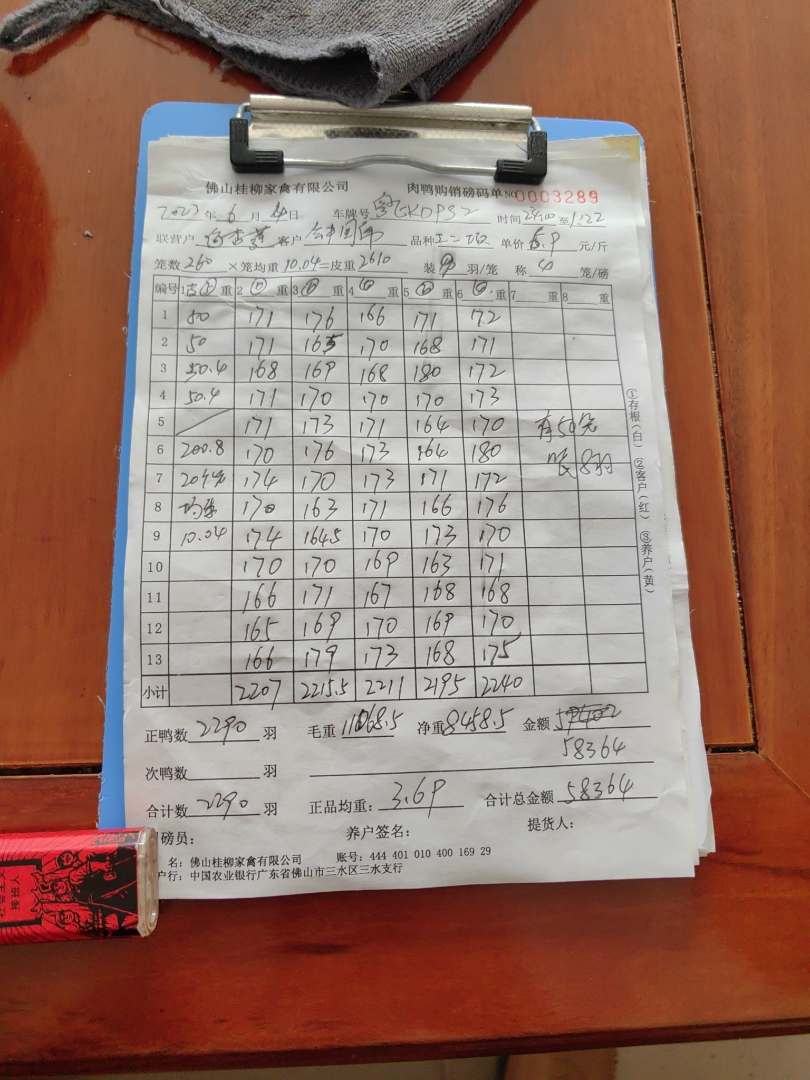 佛山桂柳家禽有限公司 肉鸭购销磅码单 NO 0003289
2022年6月4日 车牌号 时间 至1:22
联营户 客户 品种 单价6.9元/斤
笼数260×笼均重10.04=皮重2610 装9羽/笼 称4笼/磅
编号 1 重 2 重 3 重 4 重 5 重 6 重 7 重 8 重
1 50 171 176 166 171 172
2 50 171 165 170 168 171
3 50.4 168 169 168 180 172
4 50.4 171 170 170 170 173
5 171 173 171 164 170 有50元
6 200.8 170 176 173 164 180 8羽
7 20个笼 174 170 173 171 172
8 均重 170 163 171 166 176
9 10.04 174 164.5 170 173 170
10 170 170 169 163 171
11 166 171 167 168 168
12 165 169 170 169 170
13 166 179 173 168 175
小计 2207 2215.5 2211 2195 2240
正鸭数2290羽 毛重11068.5 净重8458.5 金额
58364
次鸭数 羽
合计数2290羽 正品均重:3.69 合计总金额58364
磅员: 养户签名: 提货人:
名:佛山桂柳家禽有限公司 账号:444 401 010 400 169 29
户行:中国农业银行广东省佛山市三水区三水支行
①存根(白) ②客户(红) ③养户(黄)
接班人